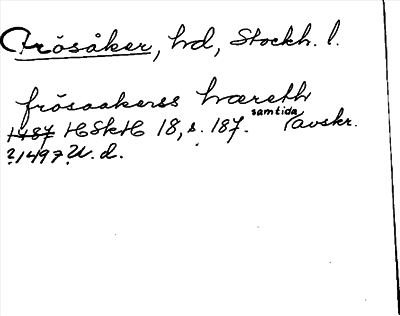 Frösåker, hd, Stockh. l.
frösaakerss hæreth
1487 HSkH 18, s. 187. samtida avskr.
?1497? U. d.